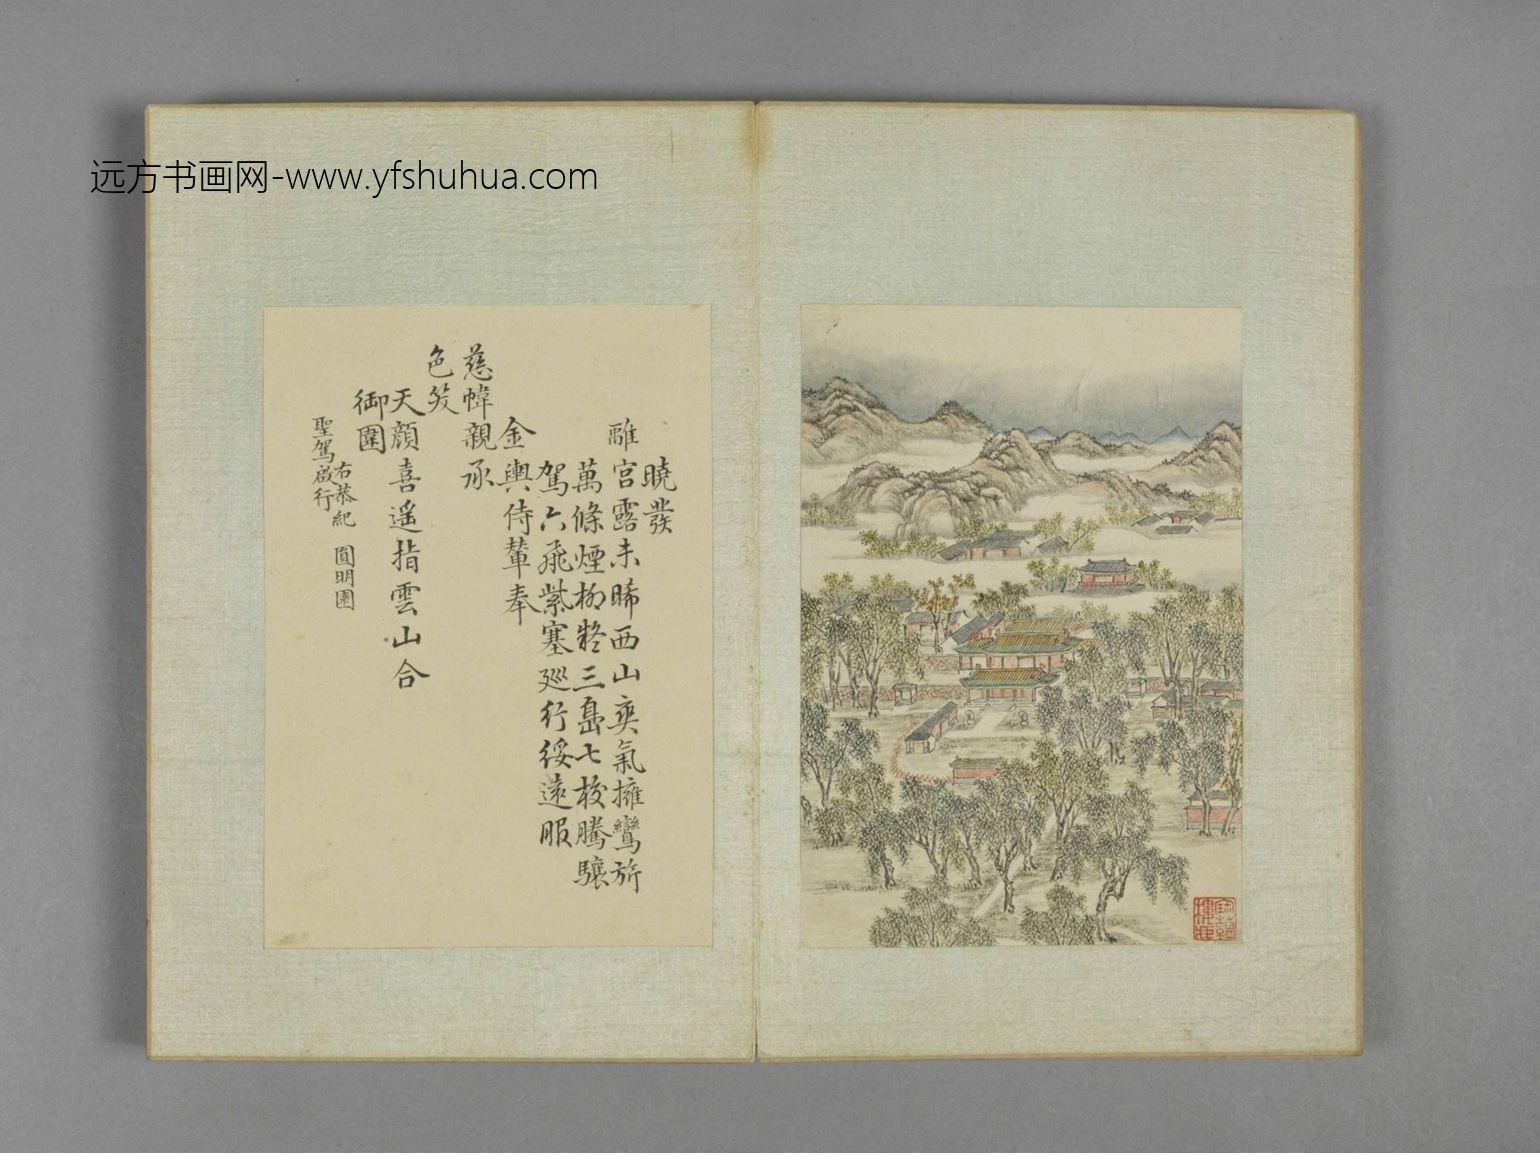 远方书画网-www.yfshuhua.com
曉發
離宮露未晞西山爽氣擁鸞旂
萬條煙柳三島七校騰驤
駕六飛紫塞巡行綏遠服
金輿侍輦奉
慈幃親承
色笑
天顏喜遥指雲山合
御圍
右恭紀 圓明園
聖駕啟行